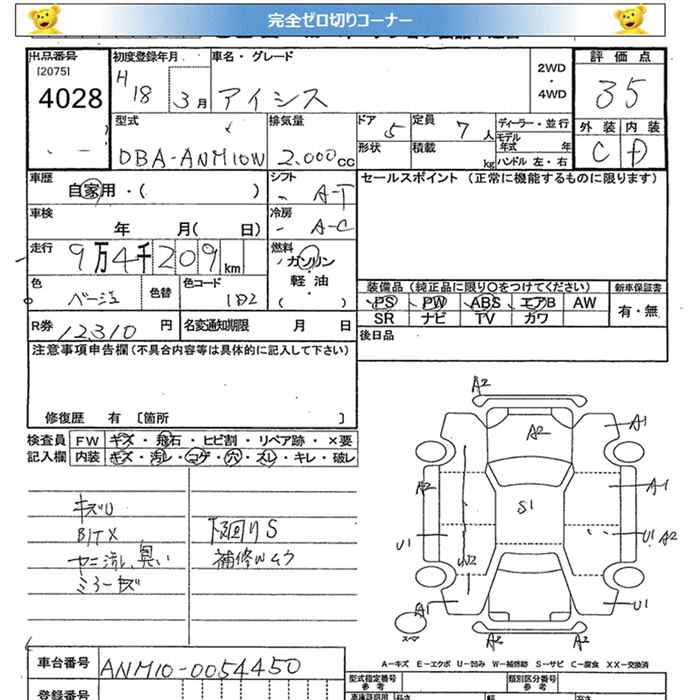 完全ゼロ切りコーナー
出品番号 初度登録年月 車名・グレード 2WD・4WD 評価点
[2075]
4028 H18 3月 アイシス 35
外装 内装
C D
型式 排気量 ドア 5 定員 7人 ディーラー・並行
DBA-ANM10W 2.000cc 形状 積載 kg モデル年式 年
ハンドル 左・右
車歴 自家用・( ) シフト A-T セールスポイント (正常に機能するものに限ります)
車検 年 月( 日) 冷房 A-C
走行 9万4千209km 燃料 ガソリン
軽・油
( )
色 色替 色コード 1B2
装備品 (純正品に限り○をつけてください) 新車保証書
PS PW ABS エアB AW 有・無
SR ナビ TV カワ
R券 12310円 名変通知期限 月 日 後日品
注意事項申告欄 (不具合内容等は具体的に記入して下さい)
修復歴 有 [箇所 ]
検査員 FW キズ・飛石・ヒビ割・リペア跡・×要
記入欄 内装 キズ・汚レ・コゲ・穴・スレ・キレ・破レ
キズU
下廻りS
A2
A2
A1
A2
A1
S1
U1
U1 A2
A1
U1
A2
A2
A-キズ E-エクボ U-凹み W-補修跡 S-サビ C-腐食 XX-交換済
車台番号 ANM10-0054450
型式指定番号 参考 類別区分番号 参考
登録番号
長さ 幅 高さ